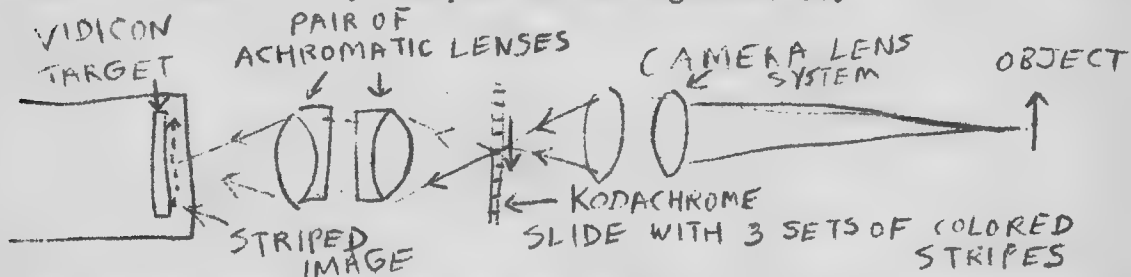 VIDICON
TARGET
PAIR OF
ACHROMATIC LENSES
CAMERA LENS
SYSTEM
OBJECT
STRIPED
IMAGE
KODACHROME
SLIDE WITH 3 SETS OF COLORED
STRIPES